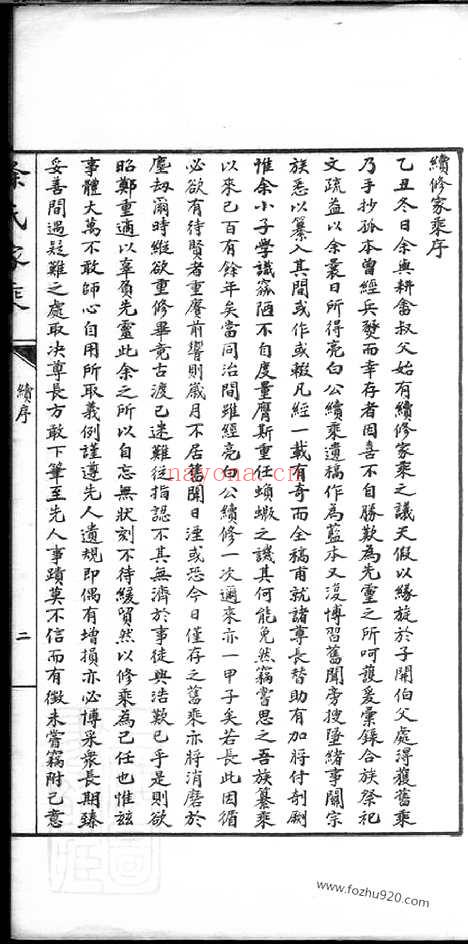 續修家乘序
乙丑冬日余與耕畬叔父始有續修家乘之議天假以緣旋於子開伯父處得獲舊乘
乃手抄孤本曾經兵燹而幸存者因喜不自勝歎為先靈之所呵護爰彙錄合族祭祀
文疏益以余曩日所得亮白公續乘遺稿作為藍本又復博習舊聞旁搜墜緒事關宗
族悉以纂入其間或作或輟凡經一載有奇而全稿甫就諸尊長贊助有加將付剞劂
惟余小子學識窳陋不自度量膺斯重任蝜蝂之譏其何能免然竊嘗思之吾族纂乘
以來已百有餘年矣當同治間雖經亮白公續修一次邇來亦一甲子矣若長此因循
必欲有待賢者重賡前響則歲月不居舊聞日湮或恐今日僅存之舊乘亦將消磨於
塵劫爾時縱欲重修畢竟古渡已迷難從指認不其無濟於事徒與浩歎已乎是則欲
昭鄭重適以辜負先靈此余之所以自忘無狀刻不待緩貿然以修乘為己任也惟茲
事體大萬不敢師心自用所取義例謹遵先人遺規即偶有增損亦必博采眾長期臻
妥善間遇疑難之處取決尊長方敢下筆至先人事蹟莫不信而有徵未嘗竊附己意
余氏家乘
續序
二
nayona.cn
www.fozhu920.com